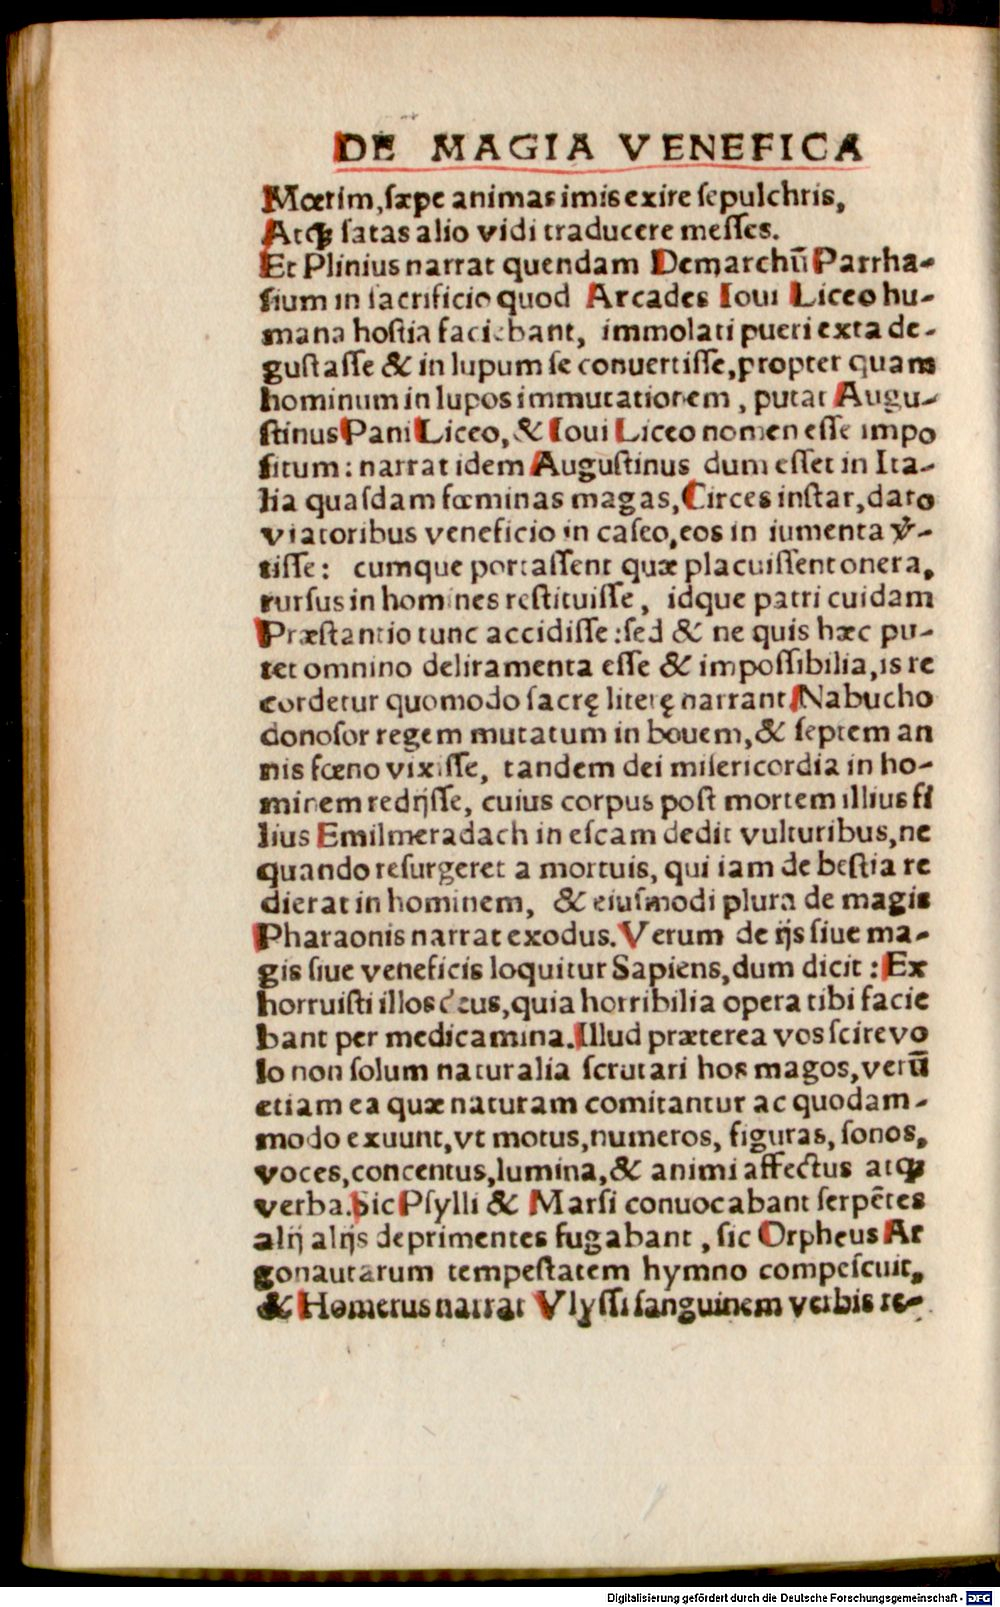 DE MAGIA VENEFICA
Mœrim, sæpe animas imis exire sepulchris,
Atqꝫ satas alio vidi traducere messes.
Et Plinius narrat quendam Demarchũ Parrha-
sium in sacrificio quod Arcades Ioui Liceo hu-
mana hostia faciebant, immolati pueri exta de-
gustasse & in lupum se conuertisse, propter quam
hominum in lupos immutationem, putat Augu-
stinus Pani Liceo, & Ioui Liceo nomen esse impo
situm: narrat idem Augustinus dum esset in Ita-
lia quasdam fœminas magas, Circes instar, dato
viatoribus veneficio in caseo, eos in iumenta v̾-
tisse: cumque portassent quæ placuissent onera,
rursus in homines restituisse, idque patri cuidam
Præstantio tunc accidisse: sed & ne quis hæc pu-
tet omnino deliramenta esse & impossibilia, is re
cordetur quomodo sacrę literę narrant Nabucho
donosor regem mutatum in bouem, & septem an
nis fœno vixisse, tandem dei misericordia in ho-
minem redijsse, cuius corpus post mortem illius fi
lius Emilmeradach in escam dedit vulturibus, ne
quando resurgeret a mortuis, qui iam de bestia re
dierat in hominem, & eiusmodi plura de magis
Pharaonis narrat exodus. Verum de ijs siue ma-
gis siue veneficis loquitur Sapiens, dum dicit: Ex
horruisti illos deus, quia horribilia opera tibi facie
bant per medicamina. Illud præterea vos scire vo
lo non solum naturalia scrutari hos magos, verũ
etiam ea quæ naturam comitantur ac quodam-
modo exuunt, vt motus, numeros, figuras, sonos,
voces, concentus, lumina, & animi affectus atqꝫ
verba. Sic Psylli & Marsi conuocabant serpẽtes
alij alijs deprimentes fugabant, sic Orpheus Ar
gonautarum tempestatem hymno compescuit,
& Homerus narrat Vlyssi sanguinem verbis re-
Digitalisierung gefördert durch die Deutsche Forschungsgemeinschaft - DFG